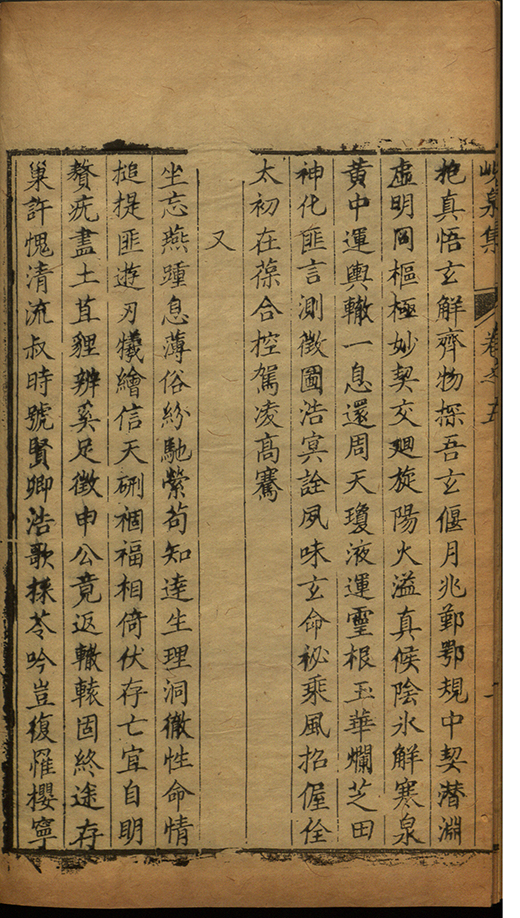 峴泉集 卷之五
抱真悟玄解齊物探吾玄偃月兆鄞鄂規中契潛淵
虛明罔樞極妙契交廻旋陽火溢真候陰氷解寒泉
黃中運輿轍一息還周天瓊液運靈根玉華爛芝田
神化匪言測徵圖浩冥詮夙味玄命祕乘風招偓佺
太初在葆合控駕凌高騫
又
坐忘燕踵息薄俗紛馳縈苟知達生理洞徹性命情
搥提匪遊刃犧繪信天硎禍福相倚伏存亡宜自明
贅疣盡土苴貍辨奚足徵申公竟返轍轅固終途存
巢許愧清流叔時號賢卿浩歌採苓吟豈復罹櫻寧